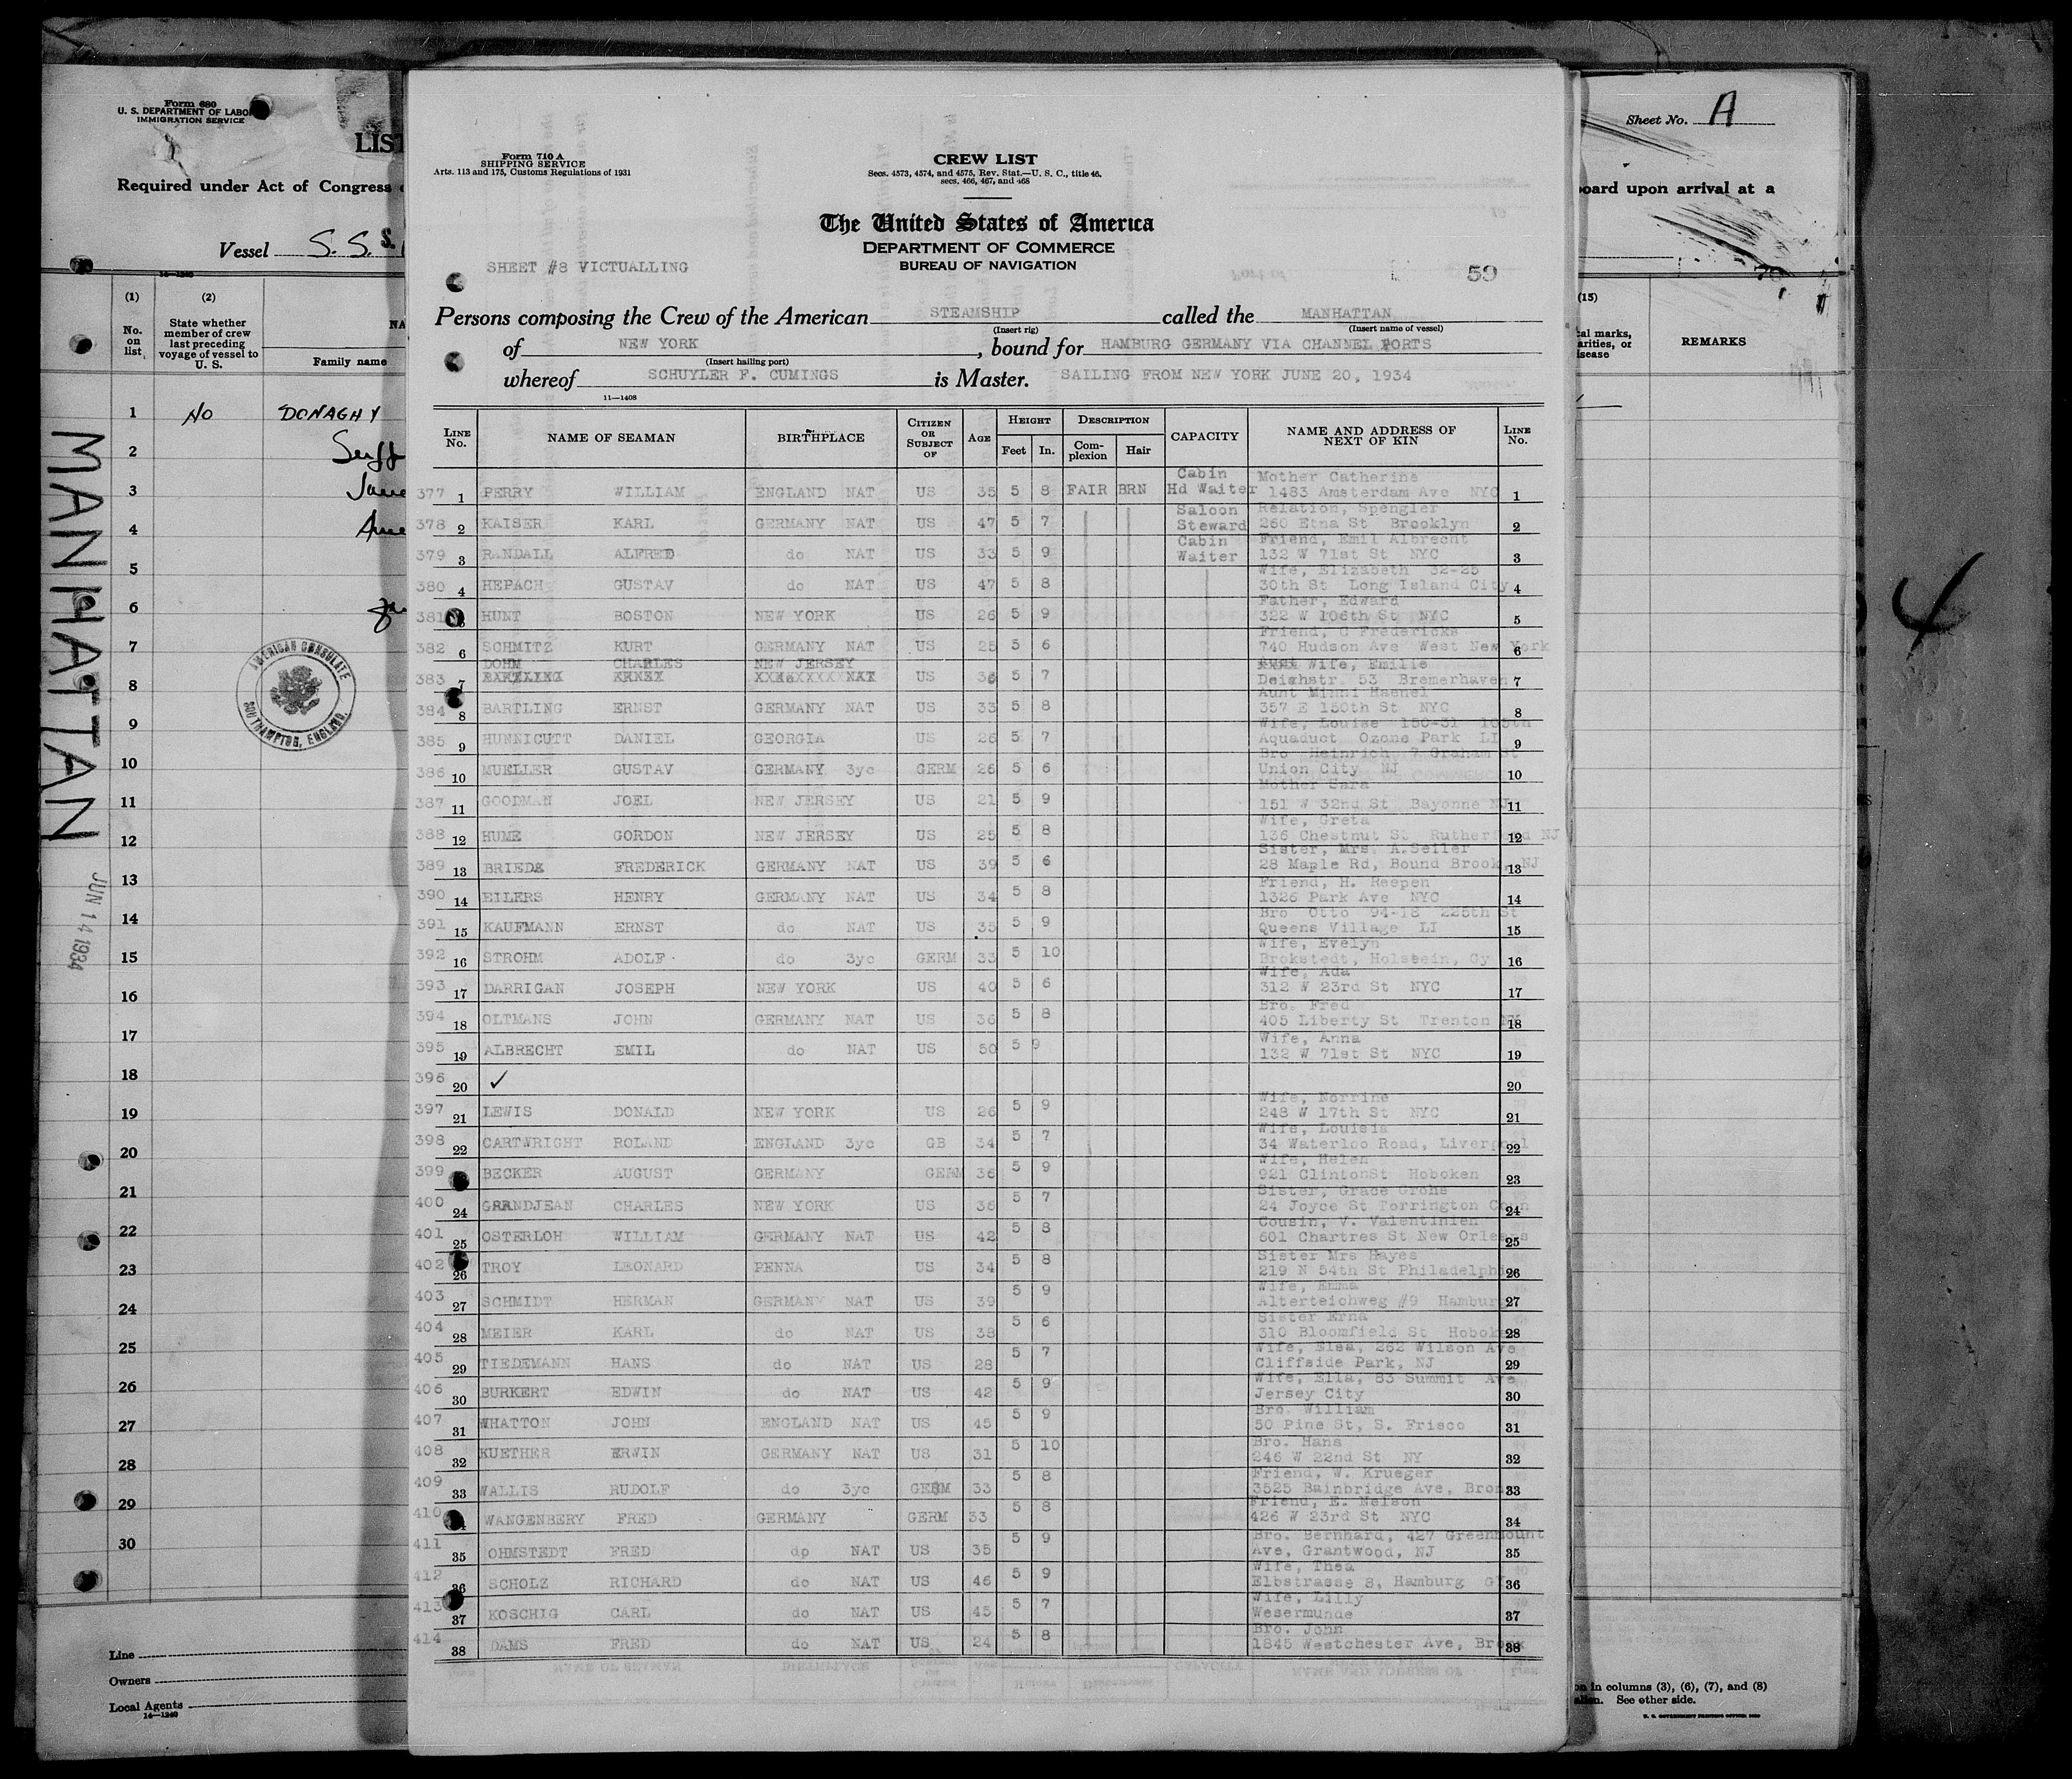 Form 680
U. S. DEPARTMENT OF LABO
IMMIGRATION SERVICE
LIST
Required under Act of Congress
Vessel S. S. S.
14-1240
(1) (2)
No. on list
State whether member of crew last preceding voyage of vessel to U. S.
NA
Family name
1 No DONAGHY
2
3
4
5
6
7
8
9
10
11
12
13
14
15
16
17
18
19
20
21
22
23
24
25
26
27
28
29
30
AMERICAN CONSULATE
SOUTHAMPTON, ENGLAND.
MANHATTAN
JUN 14 1934
Line
Owners
Local Agents
14-1240
Form 710 A
SHIPPING SERVICE
Arts. 113 and 175, Customs Regulations of 1931
CREW LIST
Secs. 4573, 4574, and 4575, Rev. Stat.—U. S. C., title 46,
secs. 466, 467, and 468
The United States of America
DEPARTMENT OF COMMERCE
BUREAU OF NAVIGATION
SHEET #8 VICTUALLING
59
Persons composing the Crew of the American STEAMSHIP called the MANHATTAN
(Insert rig) (Insert name of vessel)
of NEW YORK, bound for HAMBURG GERMANY VIA CHANNEL PORTS
(Insert hailing port)
whereof SCHUYLER F. CUMINGS is Master. SAILING FROM NEW YORK JUNE 20, 1934
11—1408
LINE No. NAME OF SEAMAN BIRTHPLACE CITIZEN OR SUBJECT OF AGE HEIGHT Feet In. DESCRIPTION Complexion Hair CAPACITY NAME AND ADDRESS OF NEXT OF KIN LINE No.
377 1 PERRY WILLIAM ENGLAND NAT US 35 5 8 FAIR BRN Cabin Hd Waiter Mother Catherine 1483 Amsterdam Ave NYC 1
378 2 KAISER KARL GERMANY NAT US 47 5 7 Saloon Steward Relation, Spengler 260 Etna St Brooklyn 2
379 3 RANDALL ALFRED do NAT US 33 5 9 Cabin Waiter Friend, Emil Albrecht 132 W 71st St NYC 3
380 4 HEPACH GUSTAV do NAT US 47 5 8 Wife, Elizabeth 32-25 30th St Long Island City 4
381 HUNT BOSTON NEW YORK US 26 5 9 Father, Edward 322 W 106th St NYC 5
382 6 SCHMITZ KURT GERMANY NAT US 25 5 6 Friend, C Fredericks 740 Hudson Ave West New York 6
383 7 DOHM CHARLES NEW JERSEY US 36 5 7 Wife, Emilie Deichstr 53 Bremerhaven 7
384 8 BARTLING ERNST GERMANY NAT US 33 5 8 Aunt Minni Haenel 357 E 150th St NYC 8
385 9 HUNNICUTT DANIEL GEORGIA US 26 5 7 Wife, Louise 150-31 Aquaduct Ozone Park LI 9
386 10 MUELLER GUSTAV GERMANY 3yc GERM 26 5 6 Bro Heinrich 7 Graham St Union City NJ 10
387 11 GOODMAN JOEL NEW JERSEY US 21 5 9 Mother Sara 151 W 32nd St Bayonne NJ 11
388 12 HUME GORDON NEW JERSEY US 25 5 8 Wife, Greta 136 Chestnut St Rutherford NJ 12
389 13 BRIEDE FREDERICK GERMANY NAT US 39 5 6 Sister, Mrs A.Seller 28 Maple Rd, Bound Brook, NJ 13
390 14 EILERS HENRY GERMANY NAT US 34 5 8 Friend, H. Reepen 1326 Park Ave NYC 14
391 15 KAUFMANN ERNST do NAT US 35 5 9 Bro Otto 94-18 225th St Queens Village LI 15
392 16 STROHM ADOLF do 3yc GERM 33 5 10 Wife, Evelyn Brokstedt, Holstein, Gy 16
393 17 DARRIGAN JOSEPH NEW YORK US 40 5 6 Wife, Ada 312 W 23rd St NYC 17
394 18 OLTMANS JOHN GERMANY NAT US 36 5 8 Bro. Fred 405 Liberty St Trenton 18
395 19 ALBRECHT EMIL do NAT US 50 5 9 Wife, Anna 132 W 71st St NYC 19
396 20 ✓ 20
397 21 LEWIS DONALD NEW YORK US 26 5 9 Wife, Norrine 248 W 17th St NYC 21
398 22 CARTWRIGHT ROLAND ENGLAND 3yc GB 34 5 7 Wife, Louisia 34 Waterloo Road, Liverpool 22
399 BECKER AUGUST GERMANY GERM 36 5 9 Wife, Helen 921 ClintonSt Hoboken 23
400 24 GRANDJEAN CHARLES NEW YORK US 36 5 7 Sister, Grace Grohe 24 Joyce St Torrington Conn 24
401 25 OSTERLOH WILLIAM GERMANY NAT US 42 5 8 Cousin, V. Valentinien 601 Chartres St New Orleans 25
402 26 TROY LEONARD PENNA US 34 5 8 Sister Mrs Hayes 219 N 54th St Philadelphi 26
403 27 SCHMIDT HERMAN GERMANY NAT US 39 5 9 Wife, Emma Alterteichweg #9 Hamburg 27
404 28 MEIER KARL do NAT US 38 5 6 Sister Erna 310 Bloomfield St Hoboken 28
405 29 TIEDEMANN HANS do NAT US 28 5 7 Wife, Elsa, 262 Wilson Ave Cliffside Park, NJ 29
406 30 BURKERT EDWIN do NAT US 42 5 9 Wife, Ella, 83 Summit Ave Jersey City 30
407 31 WHATTON JOHN ENGLAND NAT US 45 5 9 Bro. William 50 Pine St, S. Frisco 31
408 32 KUETHER ERWIN GERMANY NAT US 31 5 10 Bro. Hans 246 W 22nd St NY 32
409 33 WALLIS RUDOLF do 3yc GERM 33 5 8 Friend, W. Krueger 3525 Bainbridge Ave, Bronx 33
410 WANGENBERY FRED GERMANY GERM 33 5 8 Friend, E. Nelson 426 W 23rd St NYC 34
411 35 OHMSTEDT FRED do NAT US 35 5 9 Bro. Bernhard, 427 Greenmount Ave, Grantwood, NJ 35
412 36 SCHOLZ RICHARD do NAT US 46 5 9 Wife, Thea Elbstrasse 8, Hamburg GY 36
413 37 KOSCHIG CARL do NAT US 45 5 7 Wife, Lilly Wesermunde 37
414 38 DAMS FRED do NAT US 24 5 8 Bro. John 1845 Westchester Ave, Bronx 38
Sheet No. A
board upon arrival at a
(15)
cal marks,
arities, or
isease
REMARKS
4
on in columns (3), (6), (7), and (8)
alien. See other side.
U. S. GOVERNMENT PRINTING OFFICE